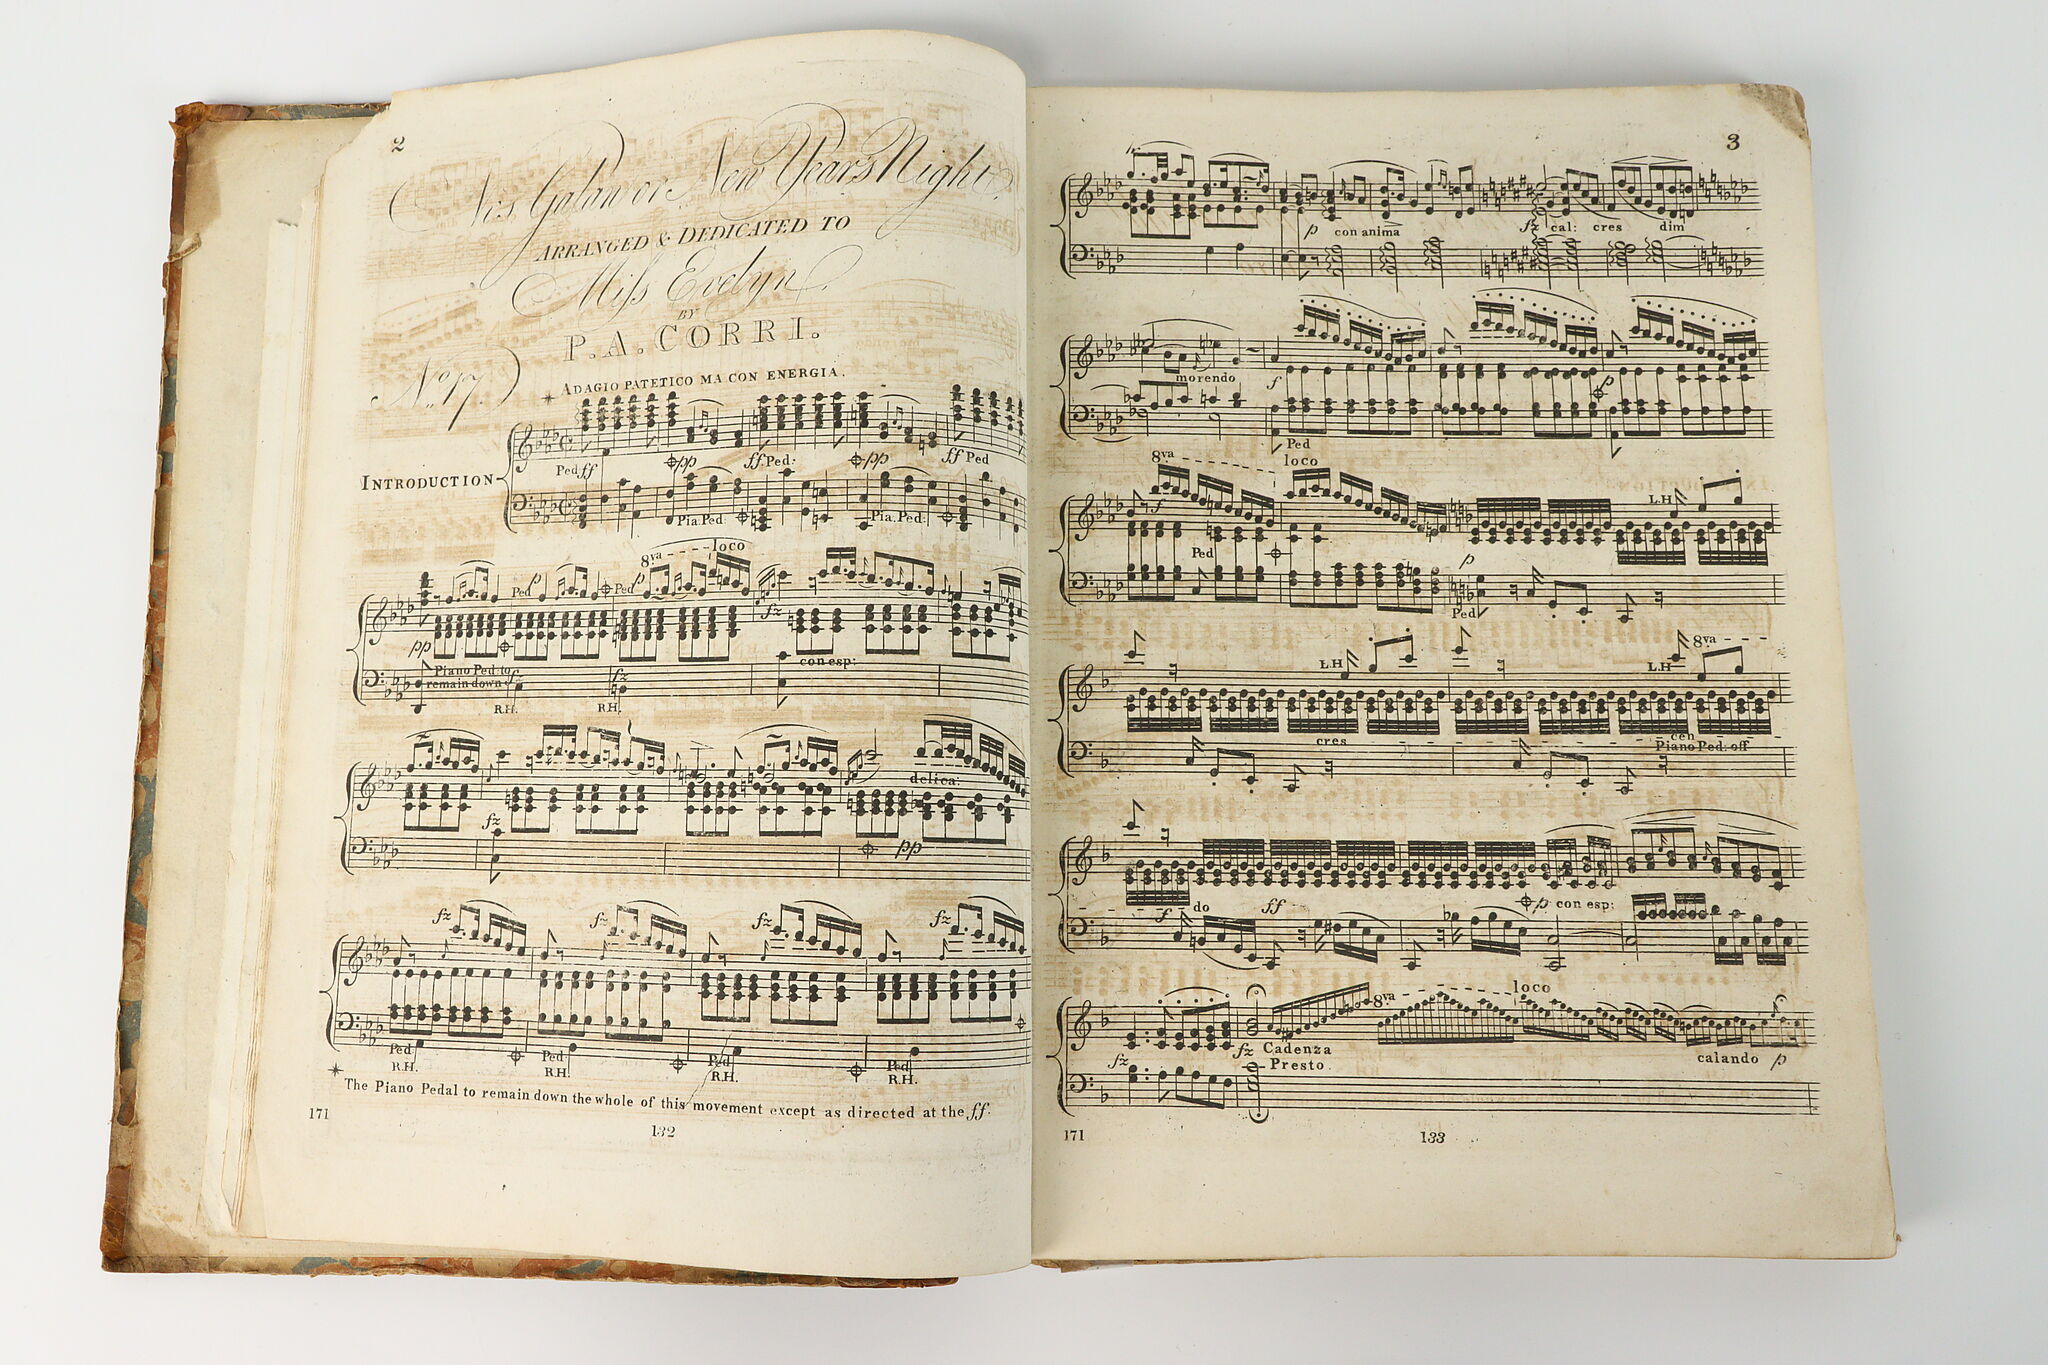 2
Nos Galan or New Years Night,
ARRANGED & DEDICATED TO
Miſs Evelyn
BY
P. A. CORRI.
No. 17.
ADAGIO PATETICO MA CON ENERGIA.
INTRODUCTION
Ped ff pp ff Ped: pp ff Ped
Pia. Ped: Pia. Ped:
8va loco
Ped p Ped p fz
pp con esp:
Piano Ped: to
remain down fz fz
R.H. R.H.
delica:
fz pp
fz fz fz fz
Ped Ped Ped Ped
R.H. R.H. R.H. R.H.
The Piano Pedal to remain down the whole of this movement except as directed at the ff.
171
132
3
p con anima fz cal: cres dim
morendo f p
Ped
8va loco
f L.H
Ped p
Ped
8va
L.H L.H
cres cen
Piano Ped: off
f do ff p con esp:
8va loco
fz fz Cadenza calando p
Presto.
171
133